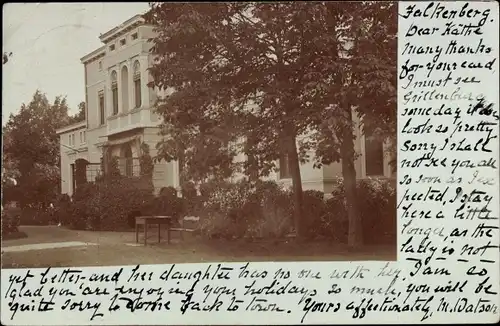 Falkenberg.
Dear Käthe
Many thanks
for your card
I must see
Grillenburg
someday it does
look so pretty
Sorry I shall
not see you as
so soon as ex
pected, I stay
here a little
longer, as the
lady is not
yet better and her daughter has no one with her, I am so
glad you are enjoying your holidays so much, you will be
quite sorry to come back to town. Yours affectionately, M. Watson